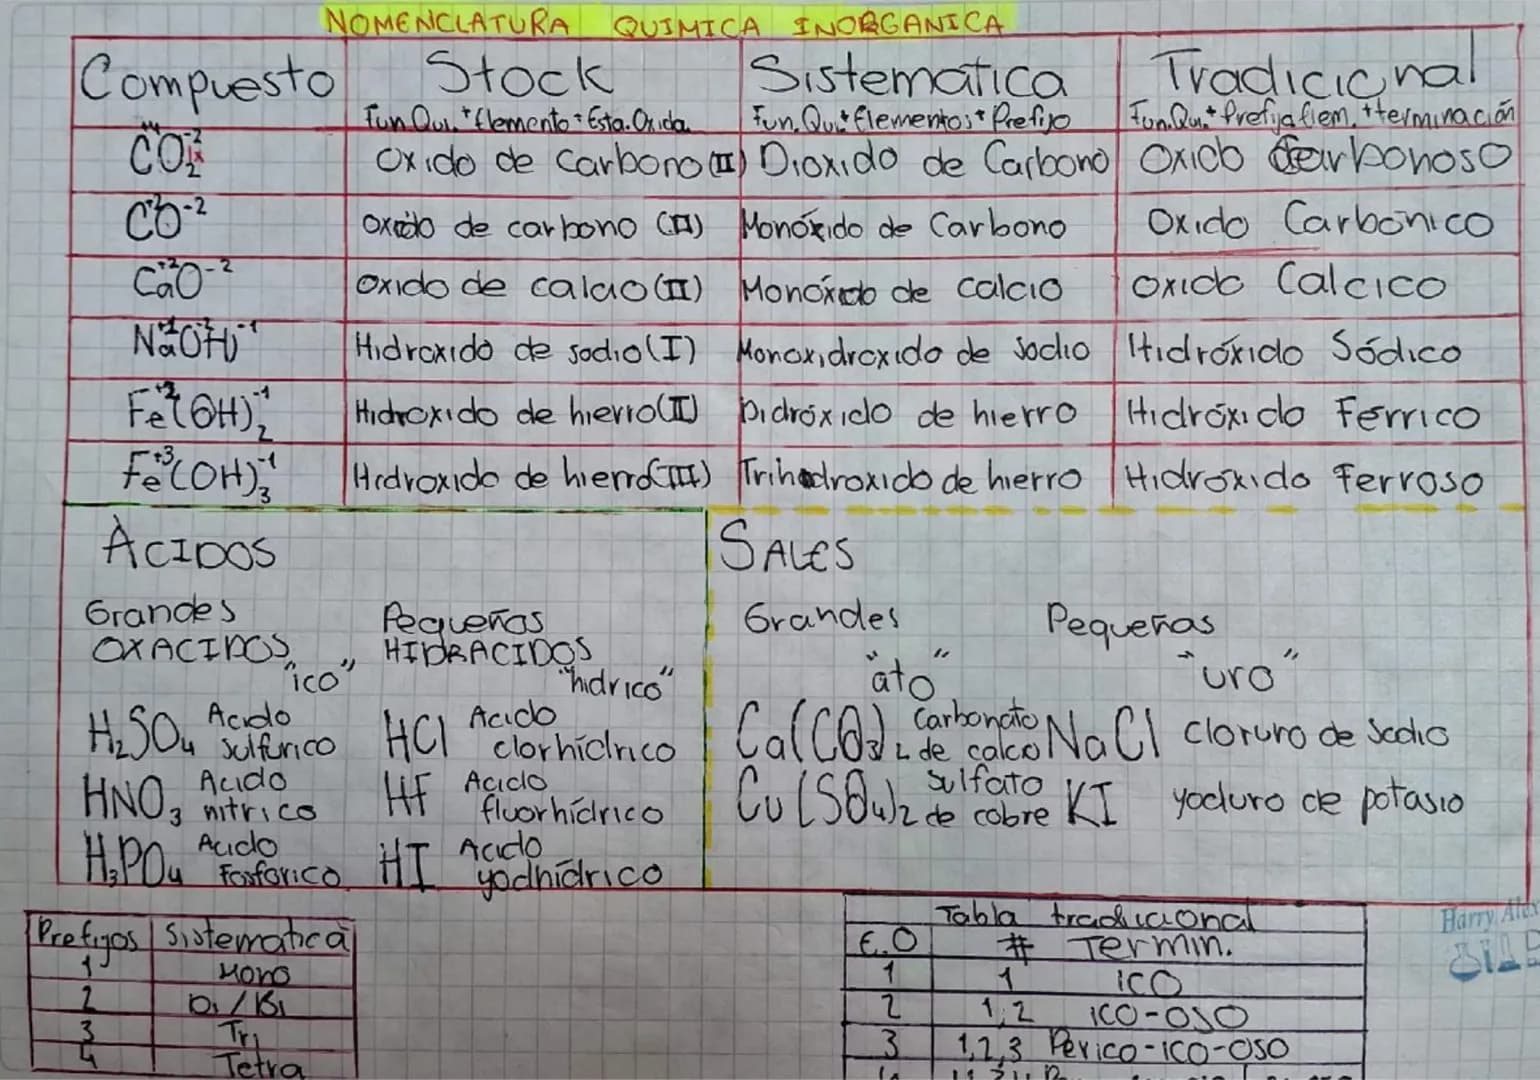 NOMENCLATURA QUIMICA INORGANICA
Compuesto Stock Sistematica Tradicional
Fun.Qui.+Elemento+Esta.Oxida. Fun.Qui+Elementos+Prefijo Fun.Qui.+Prefijo Elem.+terminación
CO₂ Oxido de carbono (II) Dioxido de Carbono Oxido Carbonoso
C⁺²O⁻² oxido de carbono (II) Monóxido de Carbono Oxido Carbonico
Ca⁺²O⁻² oxido de calcio (II) Monóxido de calcio oxido Calcico
Na⁺¹OH⁻¹ Hidroxido de sodio (I) Monoxidroxido de sodio Hidróxido Sódico
Fe⁺²(OH)₂⁻¹ Hidroxido de hierro (II) Didróxido de hierro Hidróxido Ferrico
Fe⁺³(OH)₃⁻¹ Hidroxido de hierro (III) Trihidroxido de hierro Hidróxido Ferroso
ÁCIDOS
Grandes Pequeños
OXACIDOS HIDRACIDOS
"ico" "hidrico"
H₂SO₄ Acido sulfurico HCl Acido clorhídrico
HNO₃ Acido nitrico HF Acido fluorhídrico
H₃PO₄ Acido Fosforico HI Acido yodhídrico
SALES
Grandes Pequeñas
"ato" "uro"
Ca(CO₃)₂ Carbonato de calco NaCl cloruro de Sodio
Cu(SO₄)₂ Sulfato de cobre KI yoduro de potasio
Prefijos Sistematica
1 Mono
2 Di/Bi
3 Tri
4 Tetra
Tabla tradicional
E.O # Termin.
1 1 ICO
2 1,2 ICO-OSO
3 1,2,3 Perico-ICO-OSO
Harry Alex